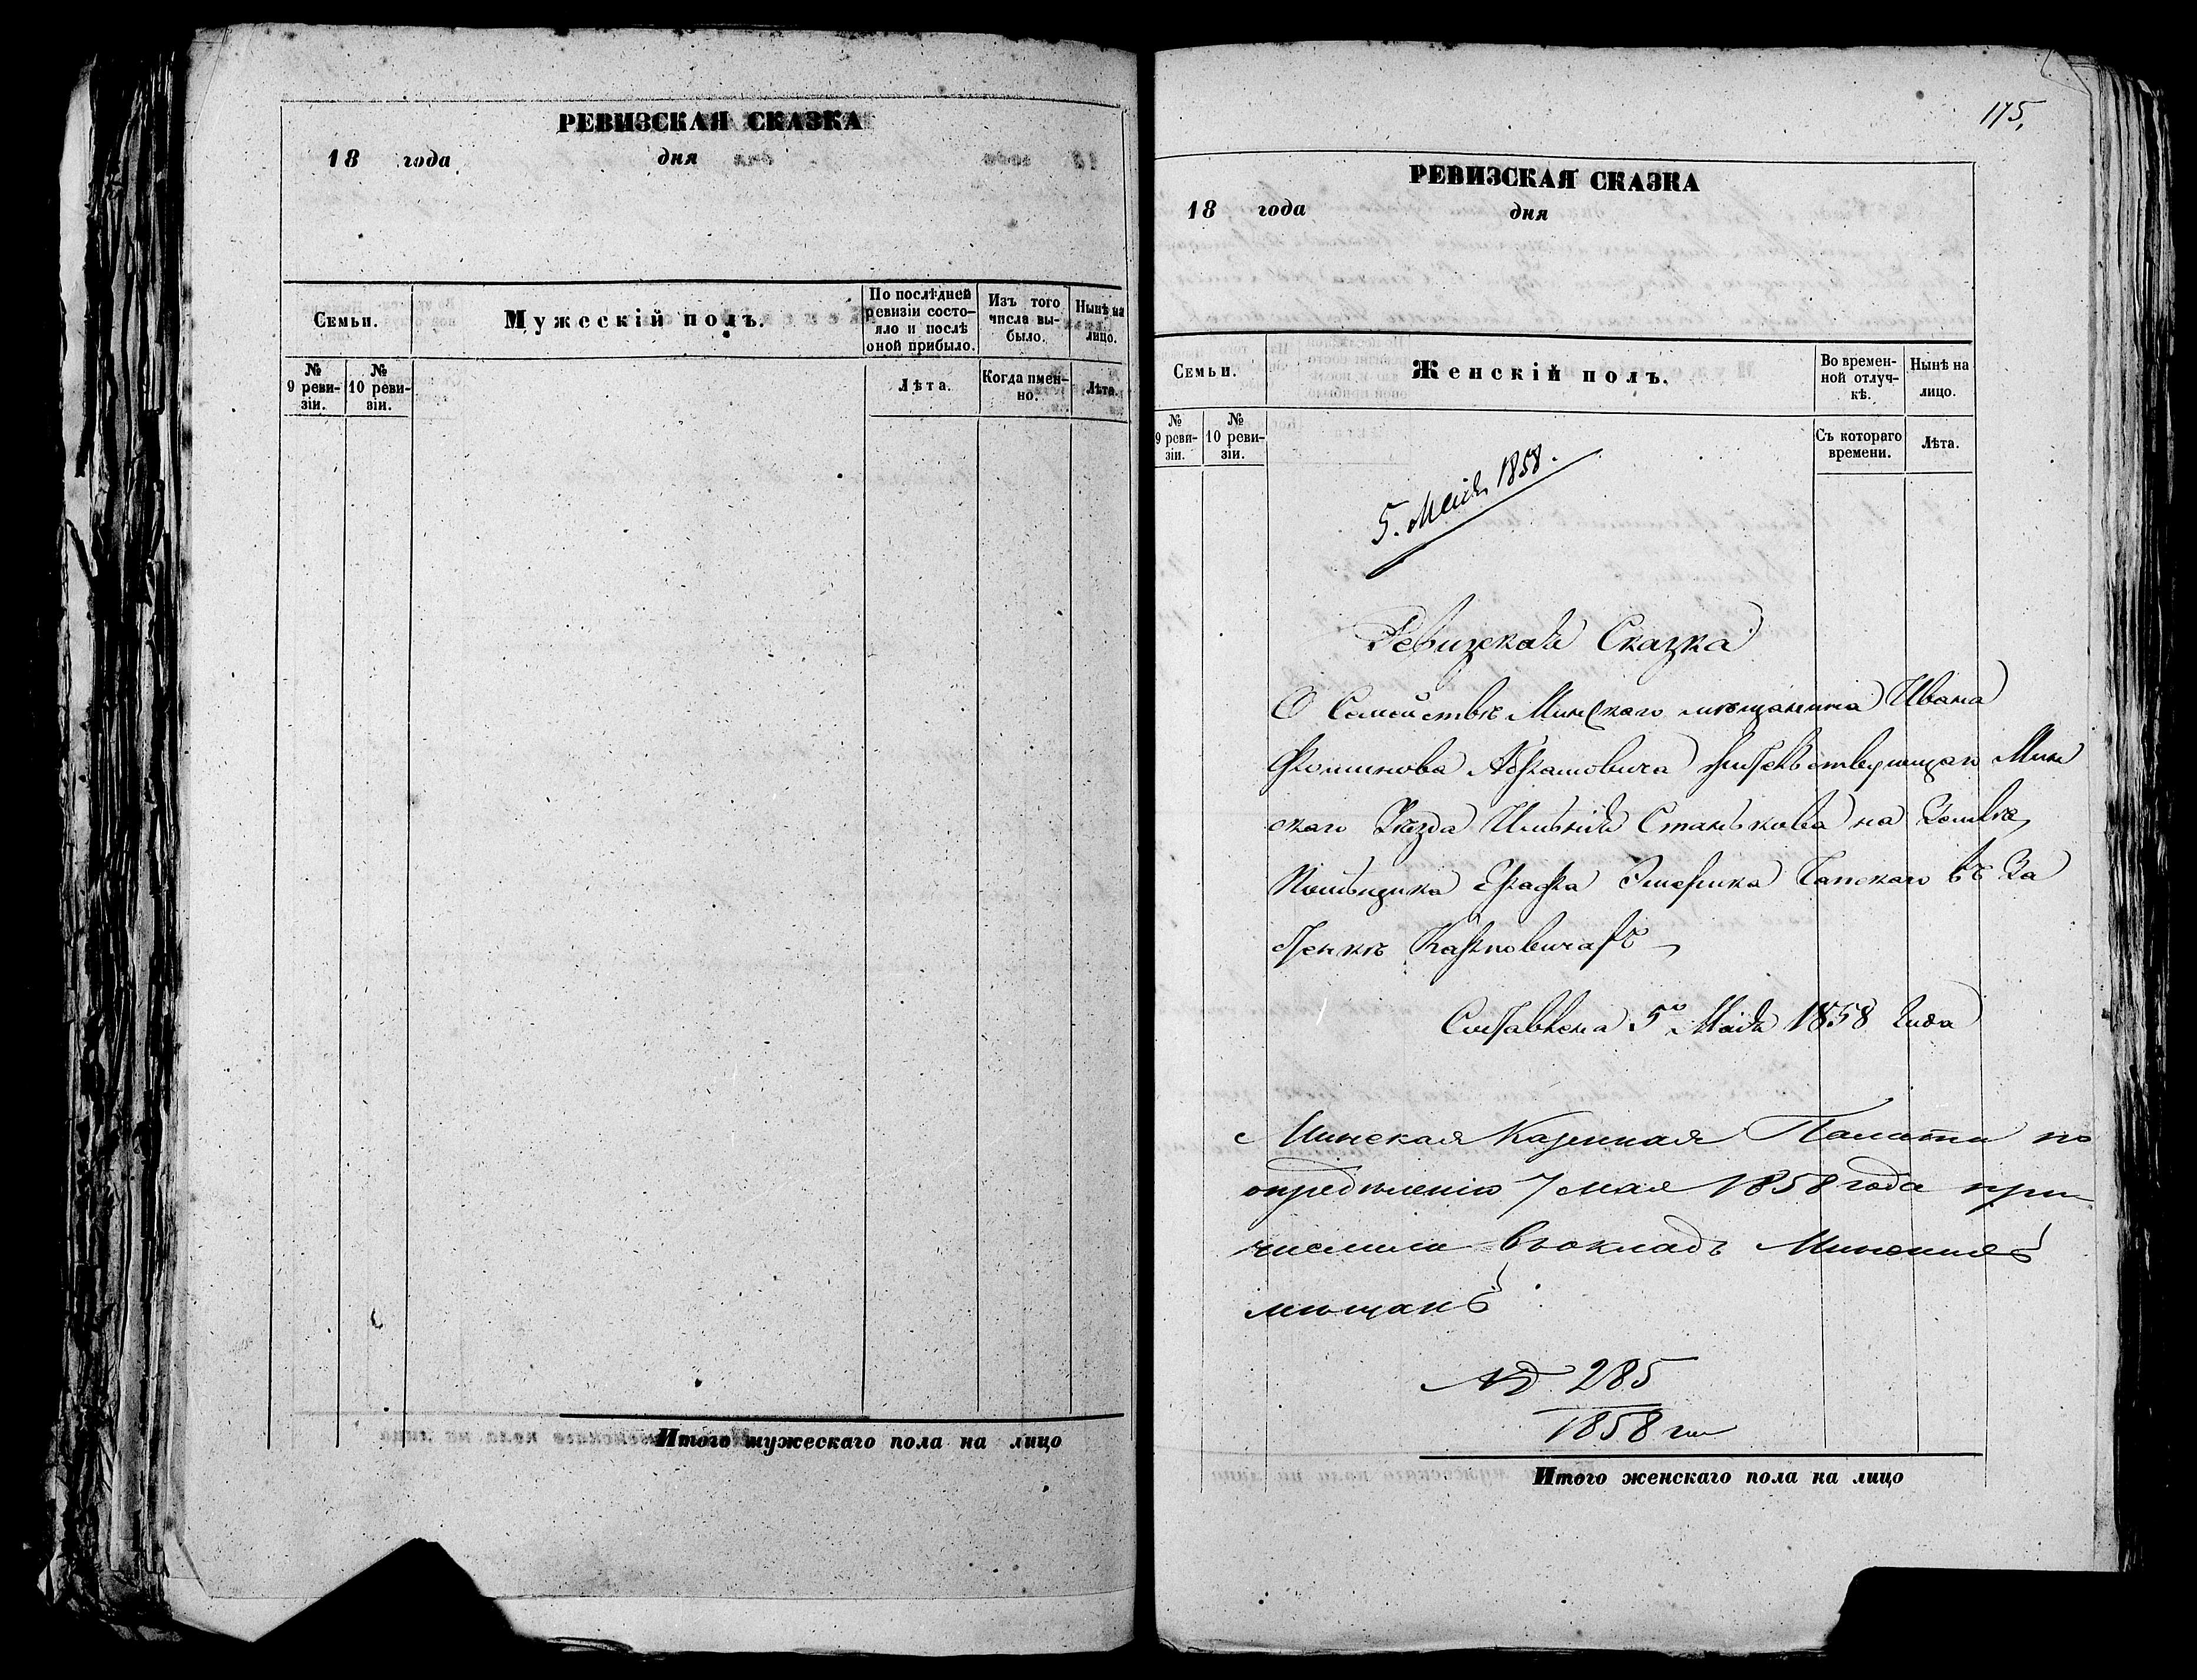 РЕВИЗСКАЯ СКАЗКА
18 года дня
Семьи.
Мужескій полъ.
По послѣдней ревизіи состояло и послѣ оной прибыло.
Изъ того числа выбыло.
Нынѣ на лицо.
№ 9 ревизіи.
№ 10 ревизіи.
Лѣта.
Когда именно.
Лѣта.
Итого мужескаго пола на лицо
175.
РЕВИЗСКАЯ СКАЗКА
18 года дня
Семьи.
Женскій полъ.
Во временной отлучкѣ.
Нынѣ на лицо.
№ 9 ревизіи.
№ 10 ревизіи.
Съ котораго времени.
Лѣта.
5. Маія 1858.
Ревизская Сказка
О Семействѣ Минскаго мѣщанина Ивана
Фоминова Абрамовича жительствующаго Мин
скаго Уѣзда Имѣнія Станькова на Землѣ
Помѣщика Графа Эмерика Чапскаго въ За
стенкѣ Карповичахъ
Составлена 5го Маія 1858 Года
Минская Казенная Палата по
опредѣленію 7 мая 1858 года при
числила въ окладъ Минскихъ
мѣщанъ
№ 285
1858 г
Итого женскаго пола на лицо